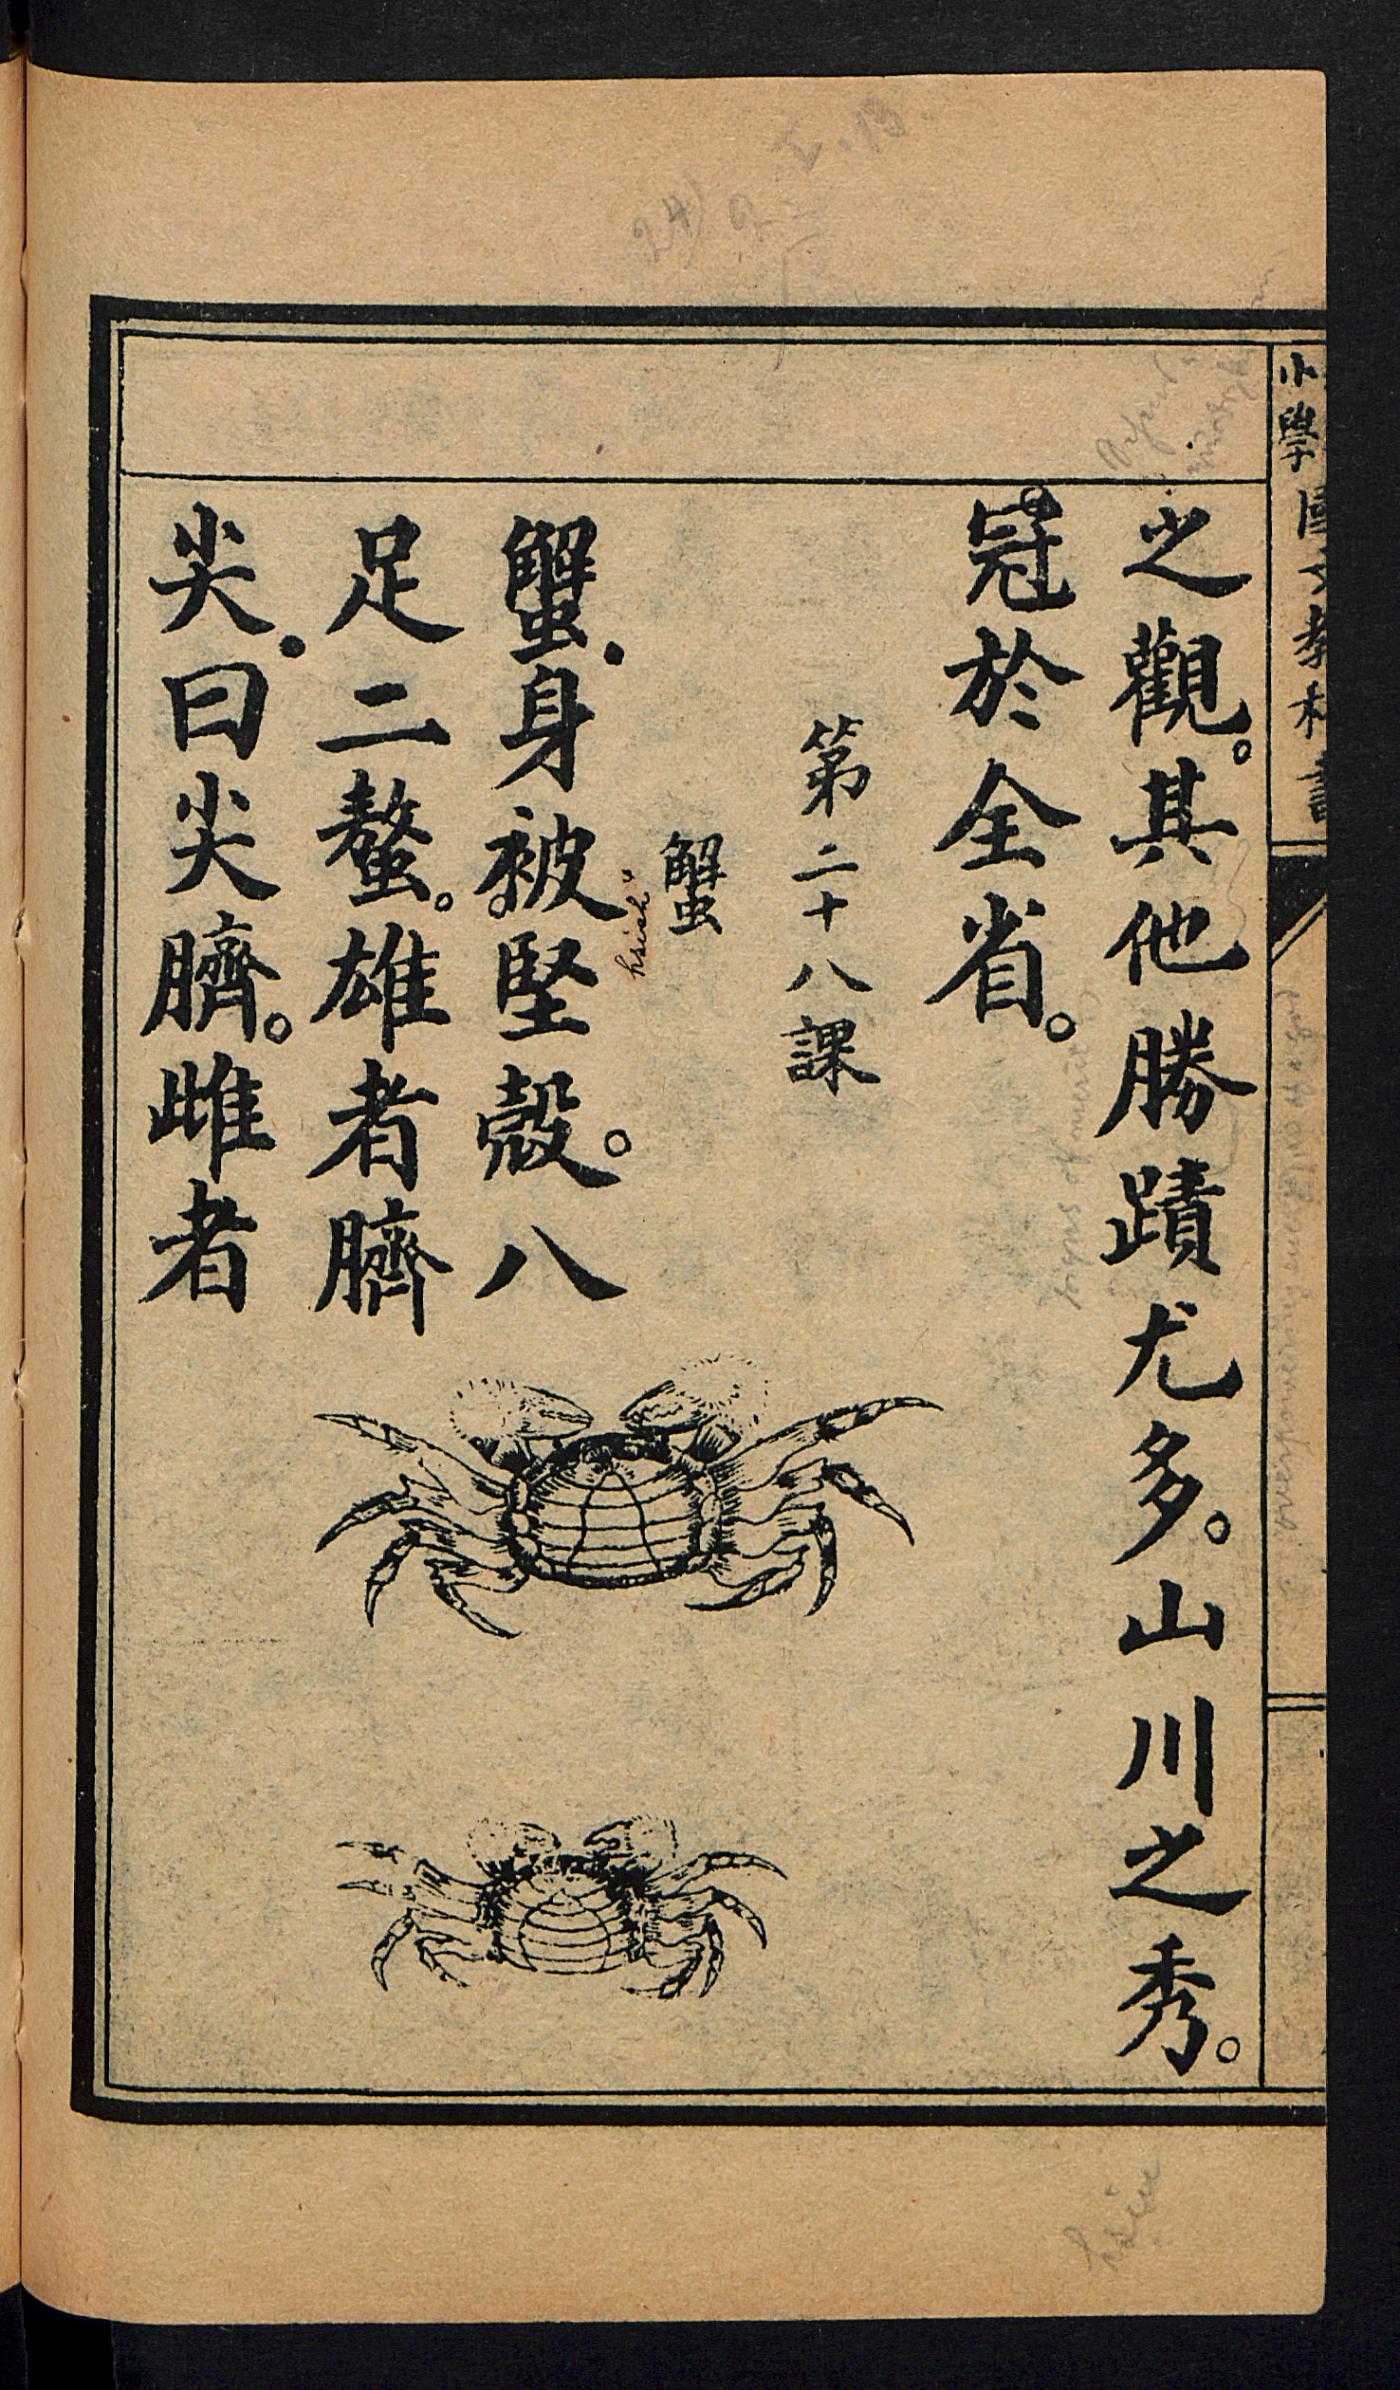 小學國文教科書
之觀。其他勝蹟尤多。山川之秀。
冠於全省。
第二十八課
蟹
hsieh
蟹.身被堅殼。八
足二螯。雄者臍
尖.曰尖臍。雌者
24)
hsiu